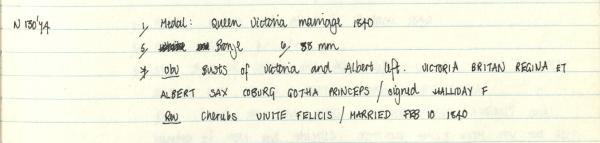 N 130'74 1, Medal: Queen Victoria marriage 1840
5, Bronze 6, 38 mm
7, Obv Busts of Victoria and Albert left. VICTORIA BRITAN REGINA ET
ALBERT SAX COBURG GOTHA PRINCEPS / signed HALLIDAY F
Rev Cherubs UNITE FELICIS / MARRIED FEB 10 1840